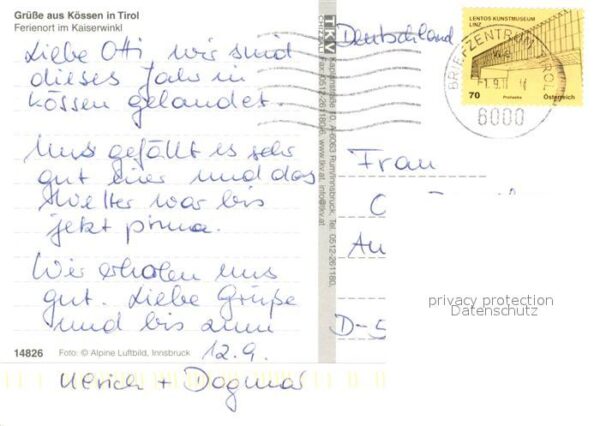 Grüße aus Kössen in Tirol
Ferienort im Kaiserwinkl
Liebe Otti, wir sind
dieses Jahr in
Kössen gelandet.
Uns gefällt es sehr
gut hier und das
Wetter war bis
jetzt prima.
Wir erholen uns
gut. Liebe Grüße
und bis zum
12.9.
Ulrich + Dagmar
14826 Foto: © Alpine Luftbild, Innsbruck
TKV
Kapellenstraße 10, A-6063 Rum/Innsbruck, Tel. 0512-261180,
Fax: 0512-261180 www.tkv.at, info@tkv.at
Deutschland
LENTOS KUNSTMUSEUM
LINZ
70 Österreich
BRIEFZENTRUM TIROL
6000
Frau
D-5
privacy protection
Datenschutz